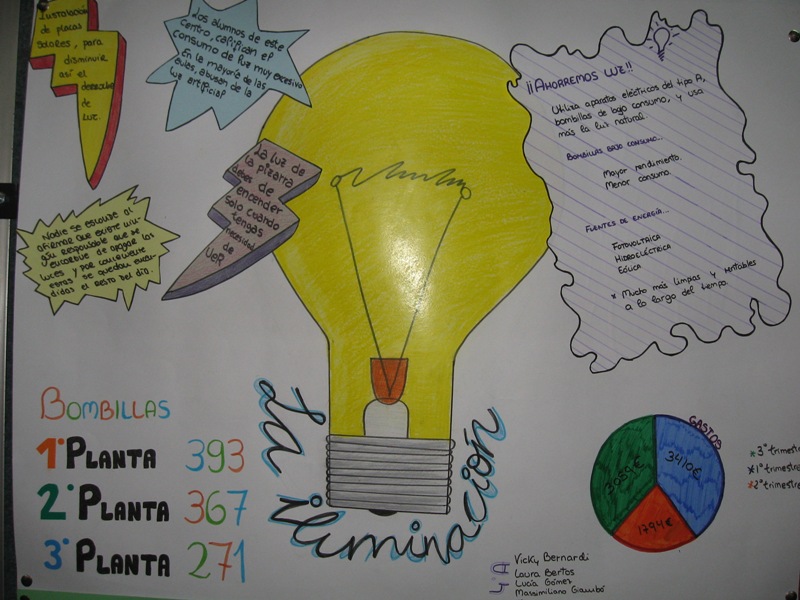 Instalación
de placas
solares, para
disminuir
así el
derroche
de
luz.
Los alumnos de este
centro, califican el
consumo de luz muy excesivo
En la mayoría de las
aulas, abusan de la
luz artificial
¡¡AHORREMOS LUZ!!
Utiliza aparatos eléctricos del tipo A,
bombillas de bajo consumo, y usa
más la luz natural.
BOMBILLAS BAJO CONSUMO...
Mayor rendimiento.
Menor consumo.
FUENTES DE ENERGÍA...
FOTOVOLTAICA
HIDROELÉCTRICA
EÓLICA
* Mucho más limpias y rentables
a lo largo del tiempo.
La luz de
la pizarra
debes de
encender
solo cuando
tengas
necesidad
de
VER
Nadie se escusa al
afirmar que existe nin-
gún responsable que se
encargue de apagar las
luces y por consiguiente
estas se quedan encen-
didas el resto del día.
BOMBILLAS
1º PLANTA 393
2º PLANTA 367
3º PLANTA 271
La iluminación
GASTOS
3089€
3410€
1794€
* 3º trimestre
* 1º trimestre
* 2º trimestre
4ºA
Vicky Bernardi
Laura Bertos
Lucía Gómez
Massimiliano Giambó